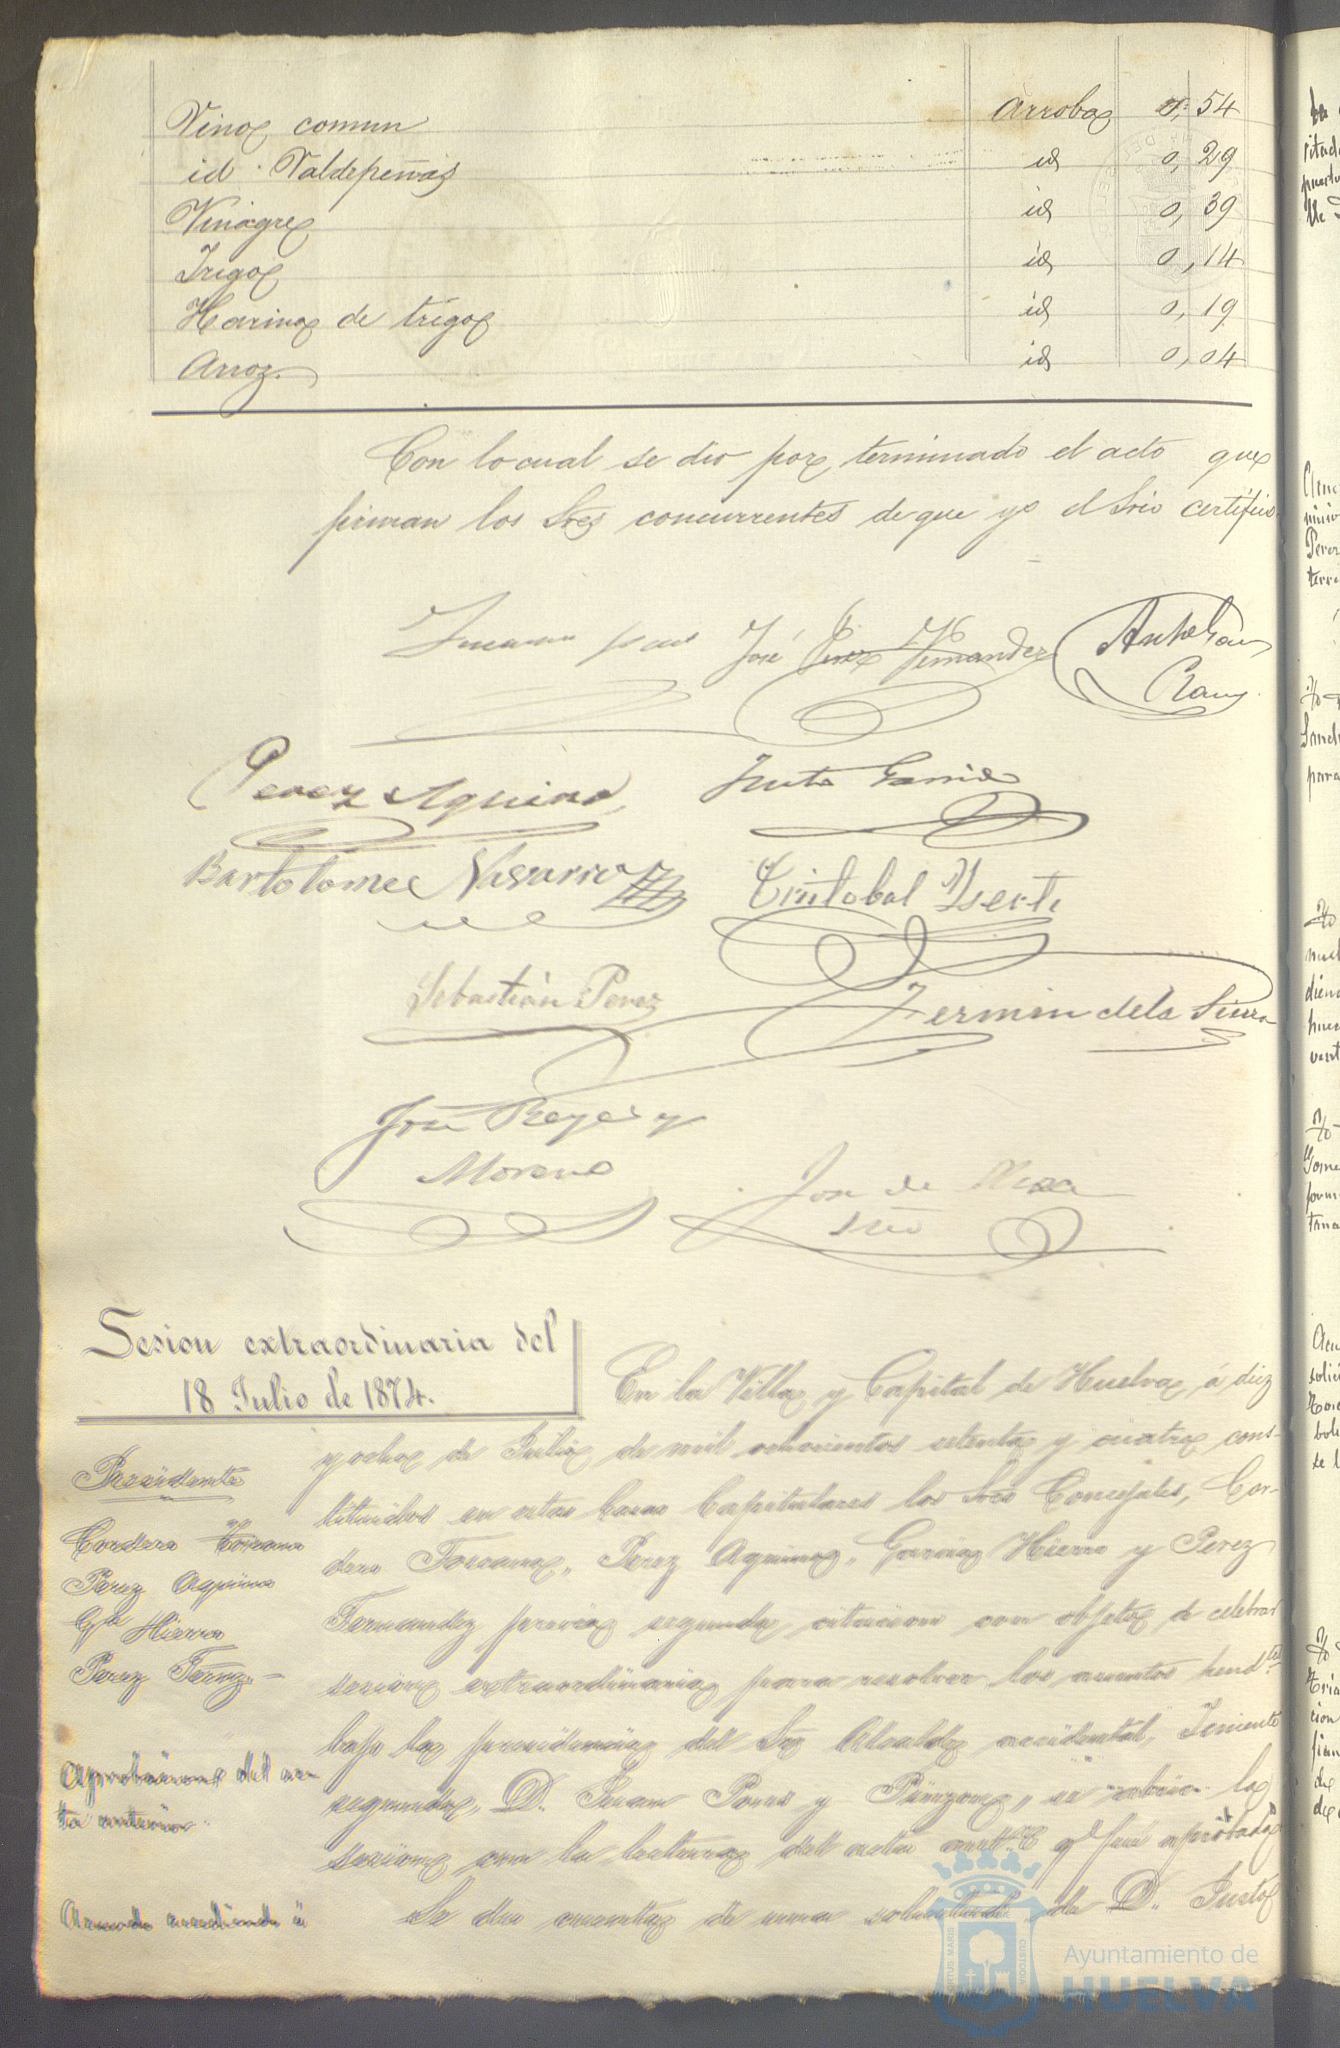 Vino comun Arrobas 0,54
id. Valdepeñas id 0,29
Vinagre id 0,39
Trigo id 0,14
Harina de trigo id 0,19
Arroz. id 0,04
Con lo cual se dio por terminado el acto que
firman los Sres concurrentes de que yo el Srio certifico
José Perez Fernandez
Perez Aquino Justo Garrido
Bartolome Navarro Cristobal Yserte
Sebastián Perez Fermin de la Sierra
José Reyes y
Moreno
José de
Srio
Sesion extraordinaria del
18 Julio de 1874.
En la Villa y Capital de Huelva, á diez
y ocho de Julio de mil ochocientos setenta y cuatro cons-
tituidos en estas Casas Capitulares los Sres Concejales, Cor-
dero Toscano, Perez Aquino, Garcia Hierro y Perez
Fernandez previa segunda citacion con objeto de celebrar
sesion extraordinaria para resolver los asuntos pendtes
bajo la presidencia del Sr Alcalde accidental, Teniente
segundo, D. Juan Pons y Pinzon, se abrió la
sesion con la lectura del acta antr. q fué aprobada
Se dio cuenta de una solicitud de D. Justo
Presidente
Cordero Toscano
Perez Aquino
Ga Hierro
Perez Fernz.
Aprobacion del ac-
ta anterior.
Acuerdo accediendo á
Ayuntamiento de
HUELVA